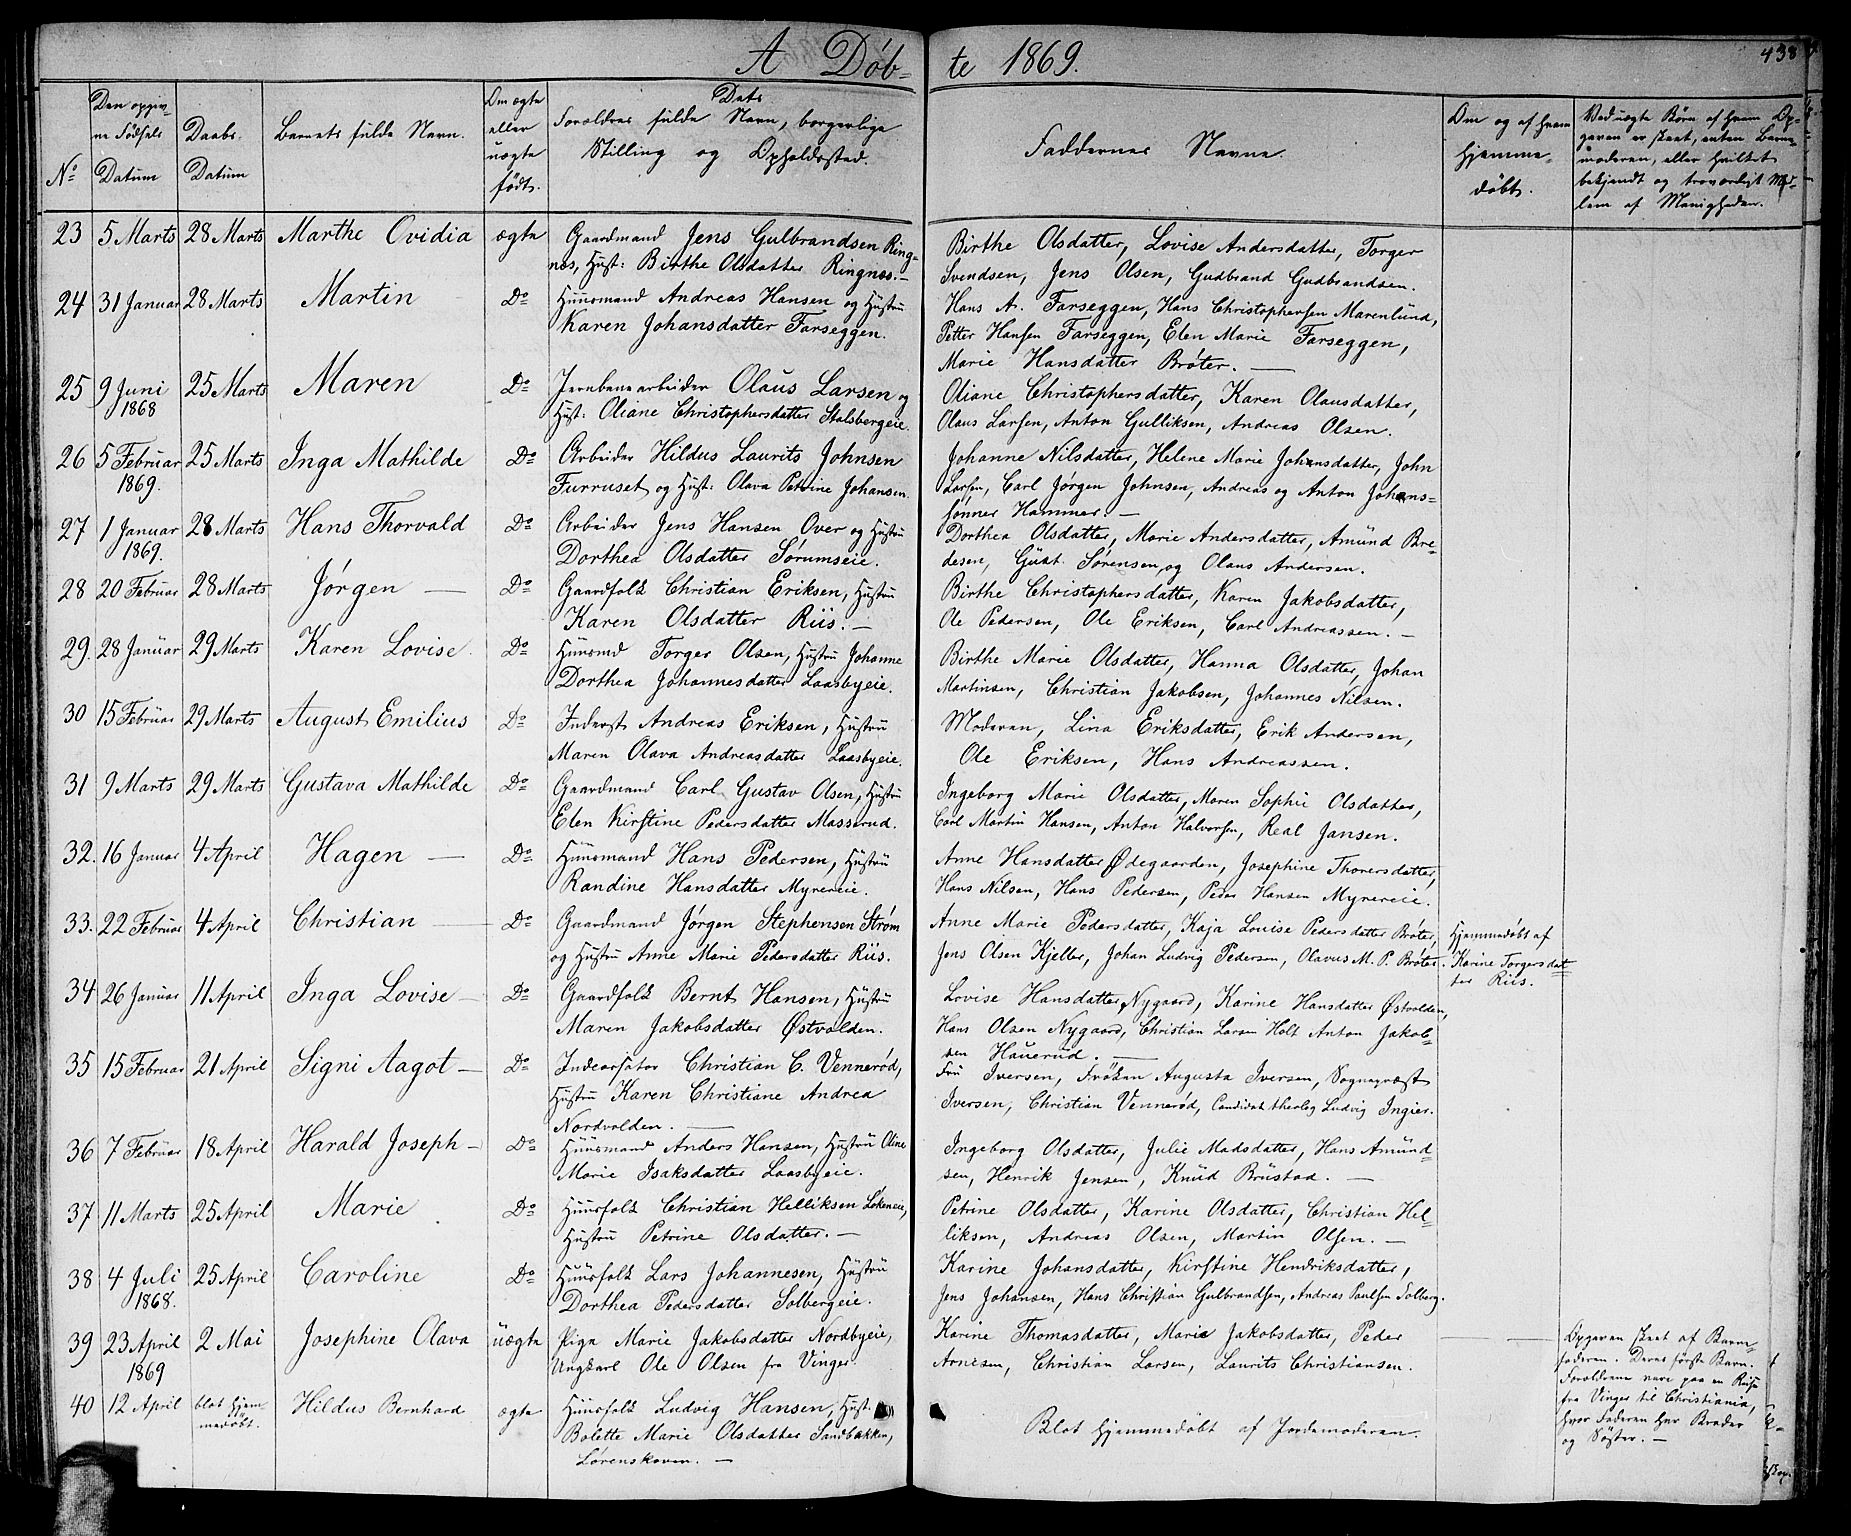 A Døbte 1869.
438
No
Den opgivne Fødsels Datum
Daabs-Datum
Barnets fulde Navn.
Om ægte eller uægte født.
Dets Forældres fulde Navn, borgerlige Stilling og Opholdssted.
Faddernes Navne.
Om og af hvem hjemmedøbt.
Ved uægte Børn af hvem Opgaven er skeet, enten Barnemoderen, eller hvilket bekjendt og troværdigt Medlem af Menigheden.
23 5 Marts 28 Marts Marthe Ovidia ægte Gaardmand Jens Gulbrandsen Ringnæs, Hust: Birthe Olsdatter Ringnæs.- Birthe Olsdatter, Lovise Andersdatter, Torger
Svendsen, Jens Olsen, Gudbrand Gudbrandsen.
24 31 Januar 28 Marts Martin Do Huusmand Andreas Hansen og Hustru
Karen Johansdatter Farseggen.
Hans A. Farseggen, Hans Christophersen Marenlund,
Petter Hansen Farseggen, Elen Marie Farseggen,
Marie Hansdatter Brøter. —
25 9 Juni 1868 25 Marts Maren Do Jernbanearbeider Olaus Larsen og
Hust: Oliane Christophersdatter Stalsbergeie.
Oliane Christophersdatter, Karen Olausdatter,
Olaus Larsen, Anton Gulliksen, Andreas Olsen.
26 5 Februar 1869. 25 Marts Inga Mathilde Do Arbeider Hildus Laurits Johnsen
Furruset og Hust: Olava Petrine Johansen.
Johanne Nilsdatter, Helene Marie Johansdatter, John
Larsen, Carl Jørgen Johnsen, Andreas og Anton Johans-
sønner Hammer. —
27 1 Januar 1869. 28 Marts Hans Thorvald Do Arbeider Jens Hansen Over og Hustru
Dorthea Olsdatter Sørumseie.
Dorthea Olsdatter, Marie Andersdatter, Amund Bre-
desen, Gust Sørensen, og Olaus Andersen.
28 20 Februar 28 Marts Jørgen — Do Gaardfolk Christian Eriksen, Hustru
Karen Olsdatter Riis. —
Birthe Christophersdatter, Karen Jakobsdatter,
Ole Pedersen, Ole Eriksen, Carl Andreassen. —
29. 28 Januar 29 Marts Karen Lovise. Do Huusmd Torger Olsen, Hustru Johanne
Dorthea Johannesdatter Laasbyeie.
Birthe Marie Olsdatter, Hanna Olsdatter, Johan
Martinsen, Christian Jakobsen, Johannes Nilsen.
30 15 Februar 29 Marts August Emilius Do Inderst Andreas Eriksen, Hustru
Maren Olava Andreasdatter Laasbyeie.
Moderen, Lina Eriksdatter, Erik Andersen,
Ole Eriksen, Hans Andreassen.
31 9 Marts 29 Marts Gustava Mathilde Do Gaardmand Carl Gustav Olsen, Hustru
Elen Kirstine Pedersdatter Masserud.
Ingeborg Marie Olsdatter, Maren Sophie Olsdatter,
Carl Martin Hansen, Anton Halvorsen, Real Jansen.
32. 16 Januar 4 April Hagen — Do Huusmand Hans Pedersen, Hustru
Randine Hansdatter Myrereie.
Anne Hansdatter Ødegaarden, Josephine Thorersdatter,
Hans Nilsen, Hans Pedersen, Peder Hansen Myrereie.
33. 22 Februar 4 April Christian — Do Gaardmand Jørgen Stephensen Strøm
og Hustru Anne Marie Pedersdatter Riis.
Anne Marie Pedersdatter, Kaja Louise Pedersdatter Brøter,
Jens Olsen Kjeller, Johan Ludvig Pedersen, Olavus M. P. Brøter.
Hjemmedøbt af
Karine Torgersdat
ter Riis.
34 26 Januar 11 April Inga Lovise — Do Gaardfolk Bernt Hansen, Hustru
Maren Jakobsdatter Østvolden.
Lovise Hansdatter Nygaard, Karine Hansdatter Østvolden,
Hans Olsen Nygaard, Christian Larsen Holt Anton Jakob-
sen Hauerud. —
35 15 Februar 21 April Signi Aagot — Do Christian C. Vennerød,
Hustru Karen Christiane Andrea
Nordvolden. —
Fru Iversen, Frøken Augusta Iversen, Sognepræst
Iversen, Christian Vennerød, Candidat theolog Ludvig Ingier.
36 7 Februar 18 April Harald Joseph — Do Huusmand Anders Hansen, Hustru Oline
Marie Isaksdatter Laasbyeie.
Ingeborg Olsdatter, Julie Madsdatter, Hans Amund-
sen, Henrik Jensen, Knud Brustad. —
37 11 Marts 25 April Marie Do Huusfolk Christian Helliksen Løkeneie,
Hustru Petrine Olsdatter. —
Petrine Olsdatter, Karine Olsdatter, Christian Hel-
liksen, Andreas Olsen, Martin Olsen. —
38 4 Juli 1868. 25 April Caroline Do Huusfolk Lars Johannesen, Hustru
Dorthea Pedersdatter Solbergeie.
Karine Johansdatter, Kirstine Hendriksdatter,
Jens Johansen, Hans Christian Gulbrandsen, Andreas Paulsen Solberg.
39 23 April 1869 2 Mai Josephine Olava uægte Pige Marie Jakobsdatter Nordbyeie,
Ungkarl Ole Olsen fra Vinger.
Karine Thomasdatter, Marie Jakobsdatter, Peder
Arnesen, Christian Larsen, Laurits Christiansen.
Opgaven skeet af Barne-
faderen. Deres første Barn.
Forældrene vare paa en Reise
fra Vinger til Christiania,
hvor Faderen har Broder
og Søster. —
40 12 April blot hjem-
medøbt. Hildus Bernhard ægte Huusfolk Ludvig Hansen, Hust.
Bolette Marie Olsdatter Sandbækken,
Lørenskoven. —
Blot hjemmedøbt af Jordemoderen.